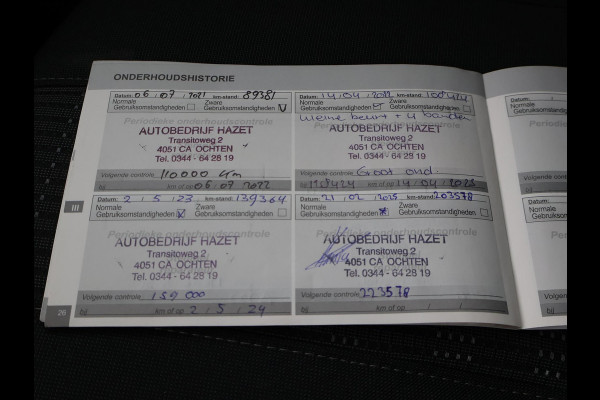 ONDERHOUDSHISTORIE
Datum: 06 / 07 / 2021 km-stand: 89381
Normale Gebruiksomstandigheden
Zware Gebruiksomstandigheden V
Periodieke onderhoudscontrole
AUTOBEDRIJF HAZET
Transitoweg 2
4051 CA OCHTEN
Tel. 0344 - 64 28 19
Volgende controle 110000 km
bij km of op 06 07 2022
Datum: 14 / 04 / 2022 km-stand:
Normale Gebruiksomstandigheden
Zware Gebruiksomstandigheden
kleine beurt + 4 banden
AUTOBEDRIJF HAZET
Transitoweg 2
4051 CA OCHTEN
Tel. 0344 - 64 28 19
Volgende controle Groot ond.
bij km of op 14 / 04 /
III
Datum: 2 / 5 / 23 km-stand: 139364
Normale Gebruiksomstandigheden X
Zware Gebruiksomstandigheden
Periodieke onderhoudscontrole
AUTOBEDRIJF HAZET
Transitoweg 2
4051 CA OCHTEN
Tel. 0344 - 64 28 19
Volgende controle 159 000
bij km of op 2 / 5 / 24
Datum: 21 / 02 / 2025 km-stand: 203578
Normale Gebruiksomstandigheden
Zware Gebruiksomstandigheden
AUTOBEDRIJF HAZET
Transitoweg 2
4051 CA OCHTEN
Tel. 0344 - 64 28 19
Volgende controle 223578
bij km of op / /
26
Datum:
Normale
Gebruiksomstandigheden
Datum:
Normale
Gebruiksomst
Volgende
bij